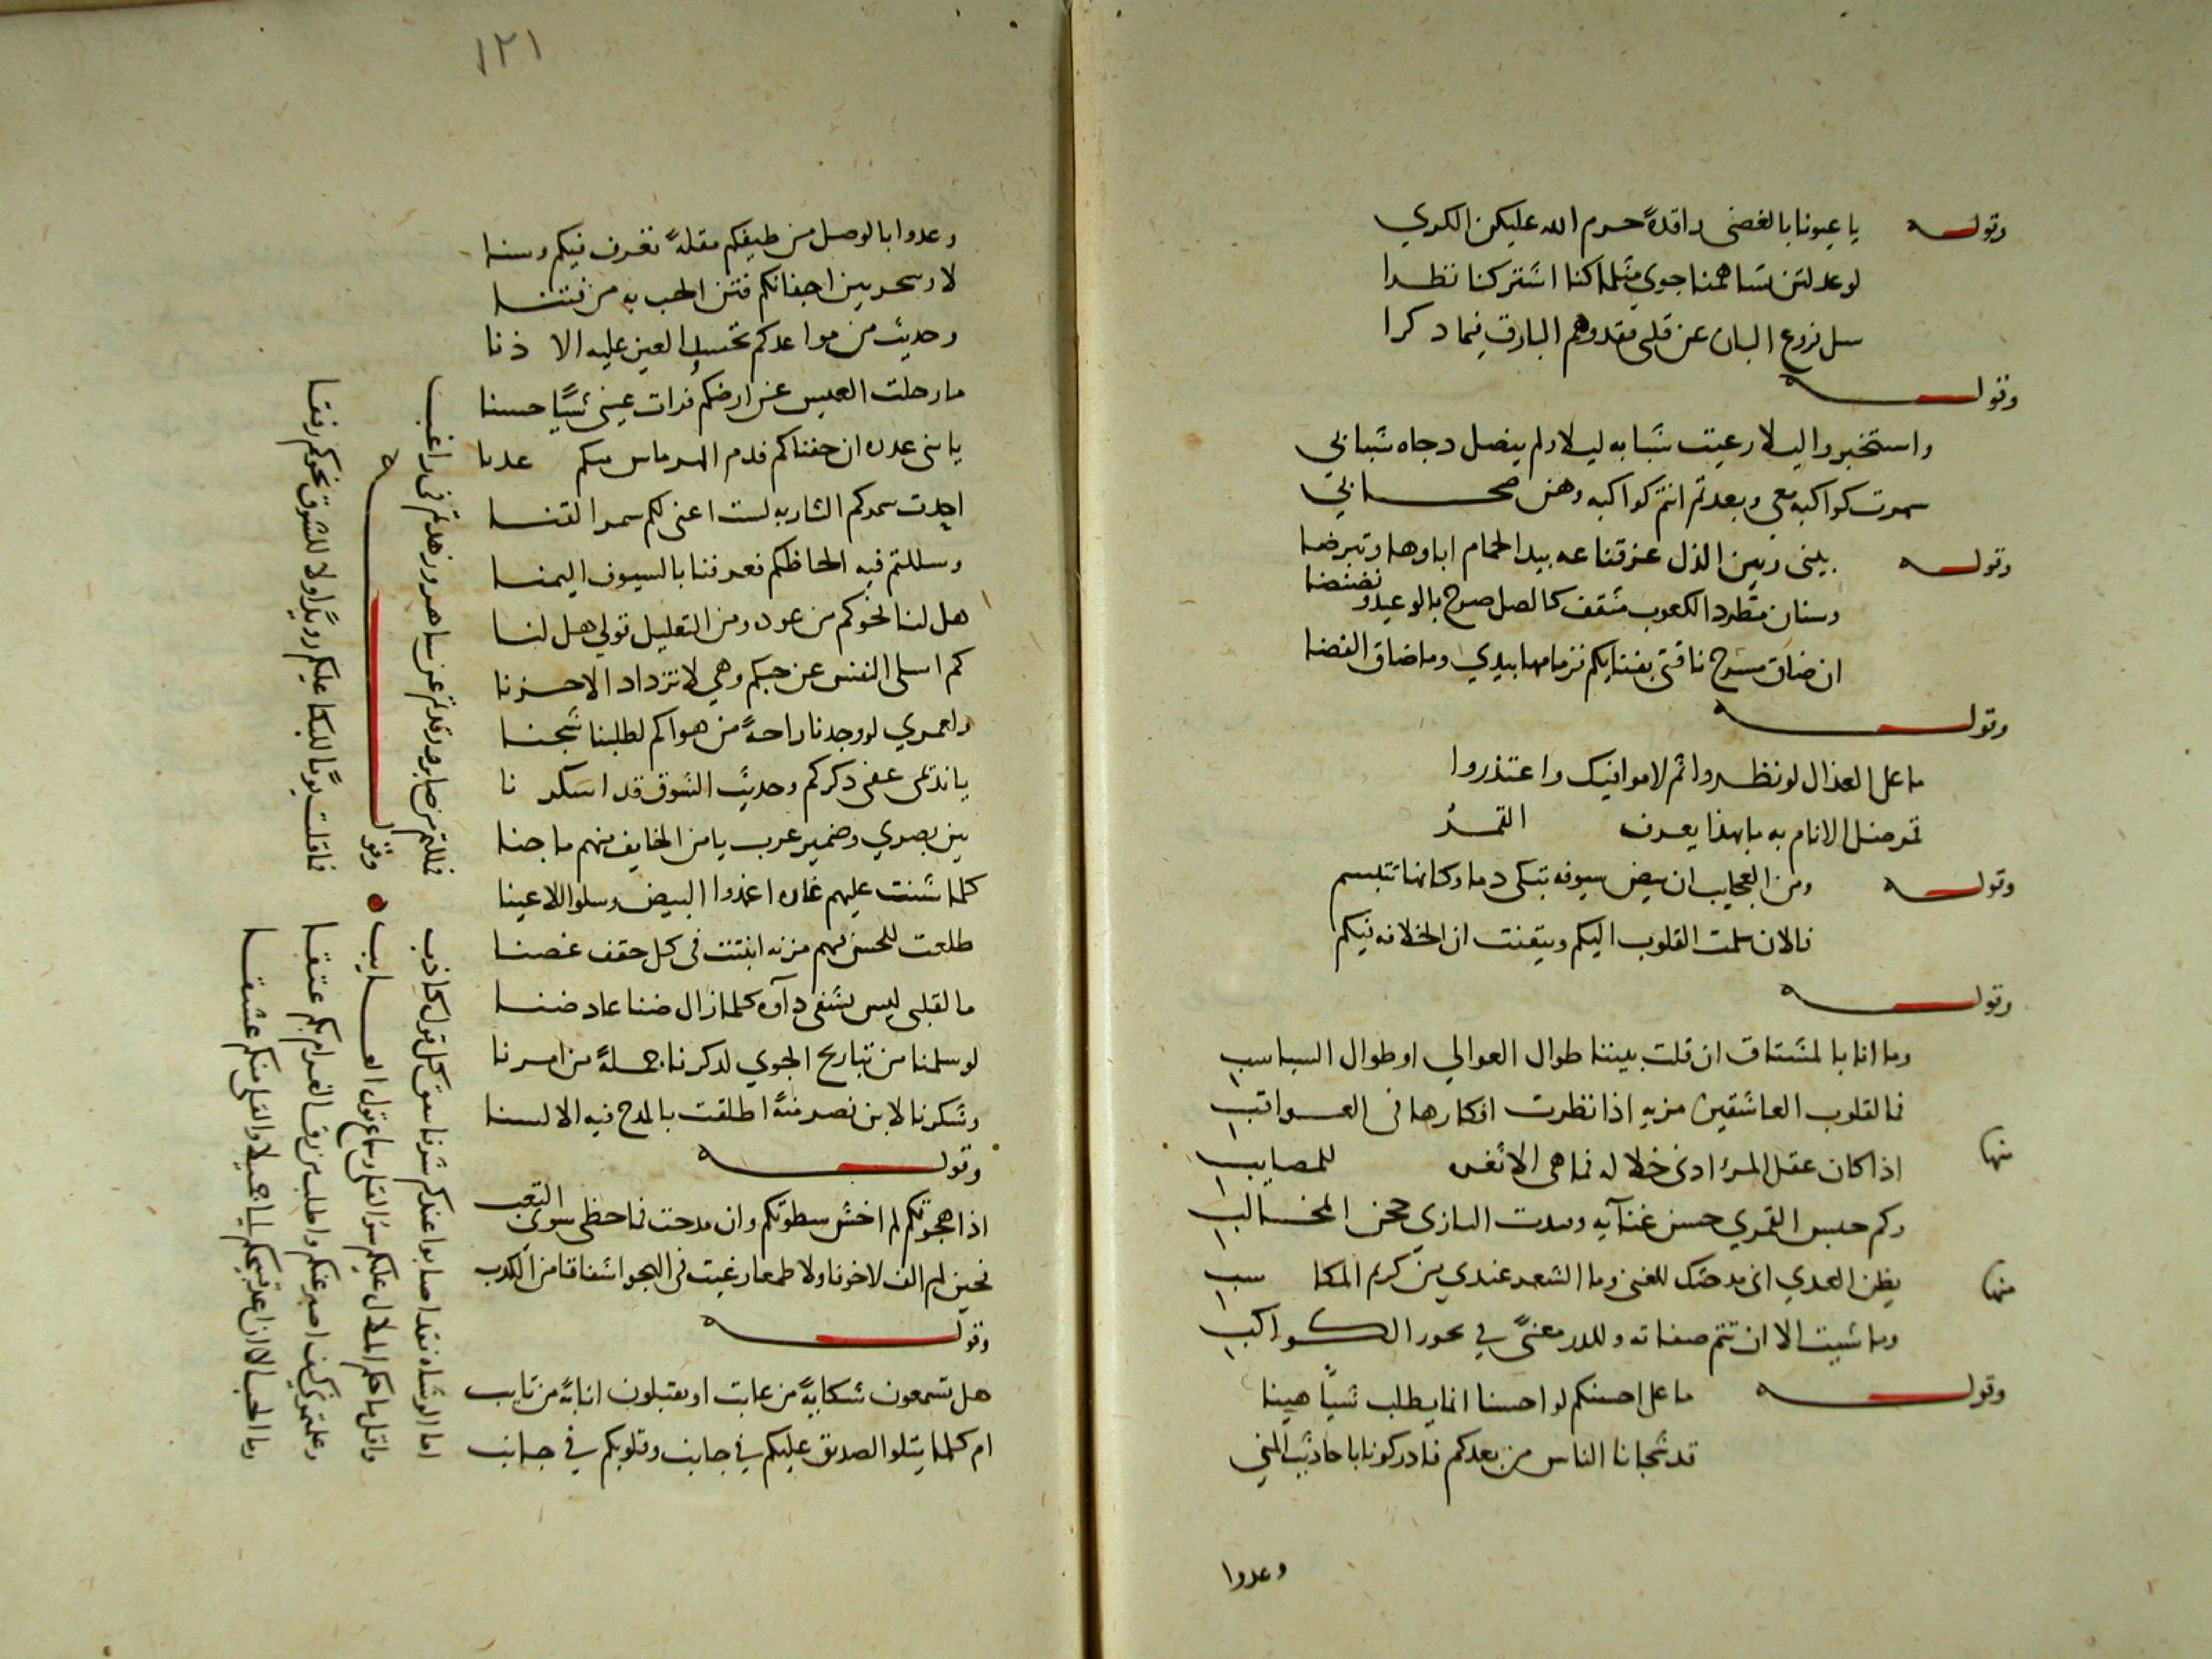 وقوله يا عيونا بالغضى راقدةً حرم الله عليكن الكري
لو عدلتن تساهمنا جوي مثلما كنا اشتركنا نظرا
سل فروع البان عن قلبي فقد وهم البارق فيما ذكرا
وقوله
واستخبروا ليلا رعيت شبابه ليلا ولم ينصل دجاه شبابي
سهرت كواكبه معي وبعدتم انتم كواكبه وهن صحابي
وقوله بيني وبين الذل عز قناعه بيد الحمام اباوها وتبرضا
وسنان مطرد الكعوب مثقف كالصل صرح بالوعيد ونضنضا
ان ضاق مسرح ناقتي بفنايكم فزمامها بيدي وما ضاق الفضا
وقوله
ما على العذال لو نظروا ثم لاموا فيك واعتذروا
قمر ضل الانام به ما بهذا يعرف القمرُ
وقوله ومن العجايب ان بيض سيوفه تبكي دما وكانها تتبسم
فالان سلمت القلوب اليكم وتيقنت ان الخلافه فيكم
وقوله
وما انا بالمشتاق ان قلت بيننا طوال العوالي او طوال السباسب
فما لقلوب العاشقين مزيه اذا نظرت افكارها في العواقب
منها اذا كان عقل المرء ادنى خلاله فما هي الا نفس للمصايب
وكم حبس القمري حسن غنآيه وقيدت البازي حجن المخالب
منها يظن العدي اني مدحتك للغنى وما الشعر عندي من كريم المكاسب
وما شيت الا ان تتم صفاته وللدر معنىً في نحور الكواكب
وقوله ما على احسنكم لو احسنا انما يطلب شياً هينا
قد شجانا الناس من بعدكم فادركونا باحاديث المنى
وعدوا
١٢١
وعدوا بالوصل من طيفكم مقلةً تعرف فيكم وسنا
لا وسحر بين اجفانكم فتن الحب به من فتنا
وحديث من مواعدكم تحسد العين عليه الاذنا
ما رحلت العيس عن ارضكم فرات عيني شيًا حسنا
ان خفناكم
سمركم لست اعني لكم سمر القنا
وسللتم فيه الحاظكم فعرفنا بالسيوف اليمنا
هل لنا نحوكم من عوده ومن التعليل قولي هل لنا
كم اسلي النفس عن حبكم وهي لا تزداد الا حزنا
ولعمري لو وجدنا راحةً من هواكم لطلبنا شجنا
ذكركم وحديث الشوق قد اسكرنا
بين بصري وضمير عرب يامن الخايف منهم ما جنا
كلما شنت عليهم غاره اغمدوا البيض وسلوا الاعينا
طلعت للحسن فيهم مزنه انبتت في كل حقف غصنا
ما لقلبي ليس يشفى دآوه كلما زال ضنا عاد ضنا
لو سلمنا من تباريح الجوي لذكرنا جملةً من امرنا
وشكرنا لابن نصر منةً اطلقت بالمدح فيه الالسنا
وقوله
اذا هجوتكم لم اخش سطوتكم وان مدحت فما حظي سوى التعب
فحين لم الف لا خوفا ولا طمعا رغبت في الهجو اشفاقا من الكذب
وقوله
هل تسمعون شكايةً من عاتب او تقبلون انابةً من تايب
ام كلما يتلو الصديق عليكم في جانب وقلوبكم في جانب
اما الوشاة فقد اصابوا عندكم شوقا ينفق كل قول كاذب
فمللتم من صابر ورقدتم عن ساهر وزهدتم في راغب
واقل ما حكم الملال عليكم سؤ القلي وسماع قول العايب
وقوله
وعلمتموني كيف اصبر عنكم واطلب من رق الغرام بكم عتقا
فما قلت يومًا للبكا عليكم رويدًا ولا للشوق نحوكم رفقا
وما الحب الا ان اعد قبيحكم الي جميلا والقلي منكم عشقا